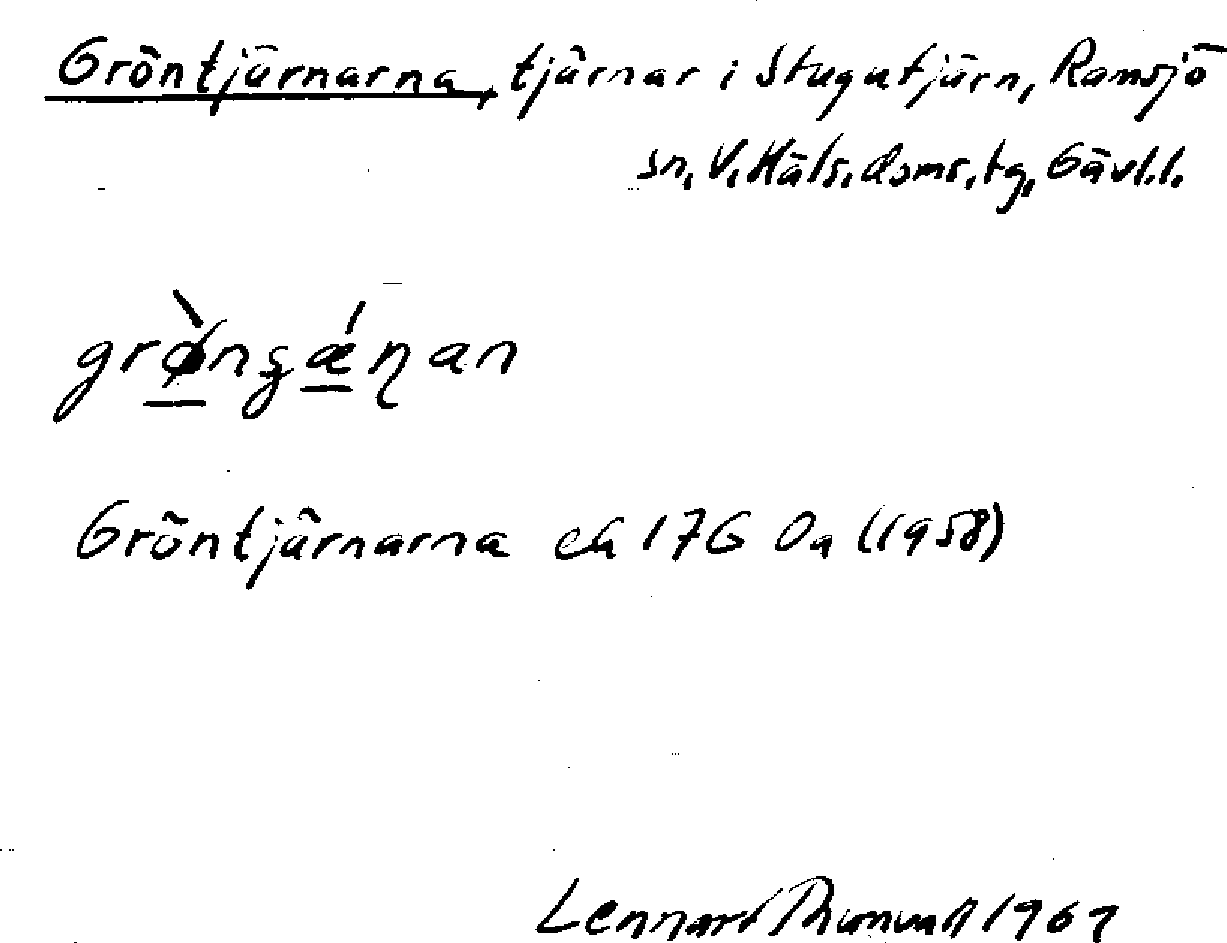 Gröntjärnarna, tjärnar i Stugatjärn, Ramsjö
sn, V. Häls. doms. tg, Gävl.l.
grø̀nʂǽɳan
Gröntjärnarna ek 17G 0a (1958)
Lennart Thunvall 1967